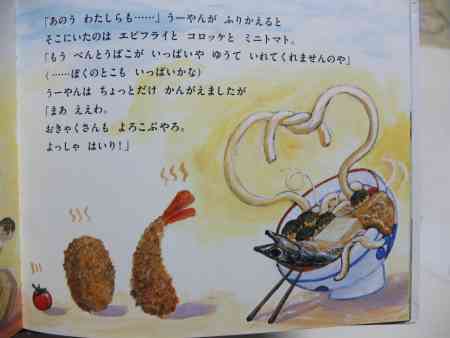 「あのう わたしらも……」うーやんが ふりかえると
そこにいたのは エビフライと コロッケと ミニトマト。
「もう べんとうばこが いっぱいや ゆうて いれてくれませんのや」
(……ぼくのとこも いっぱいかな)
うーやんは ちょっとだけ かんがえましたが
「まあ ええわ。
おきゃくさんも よろこぶやろ。
よっしゃ はいり!」